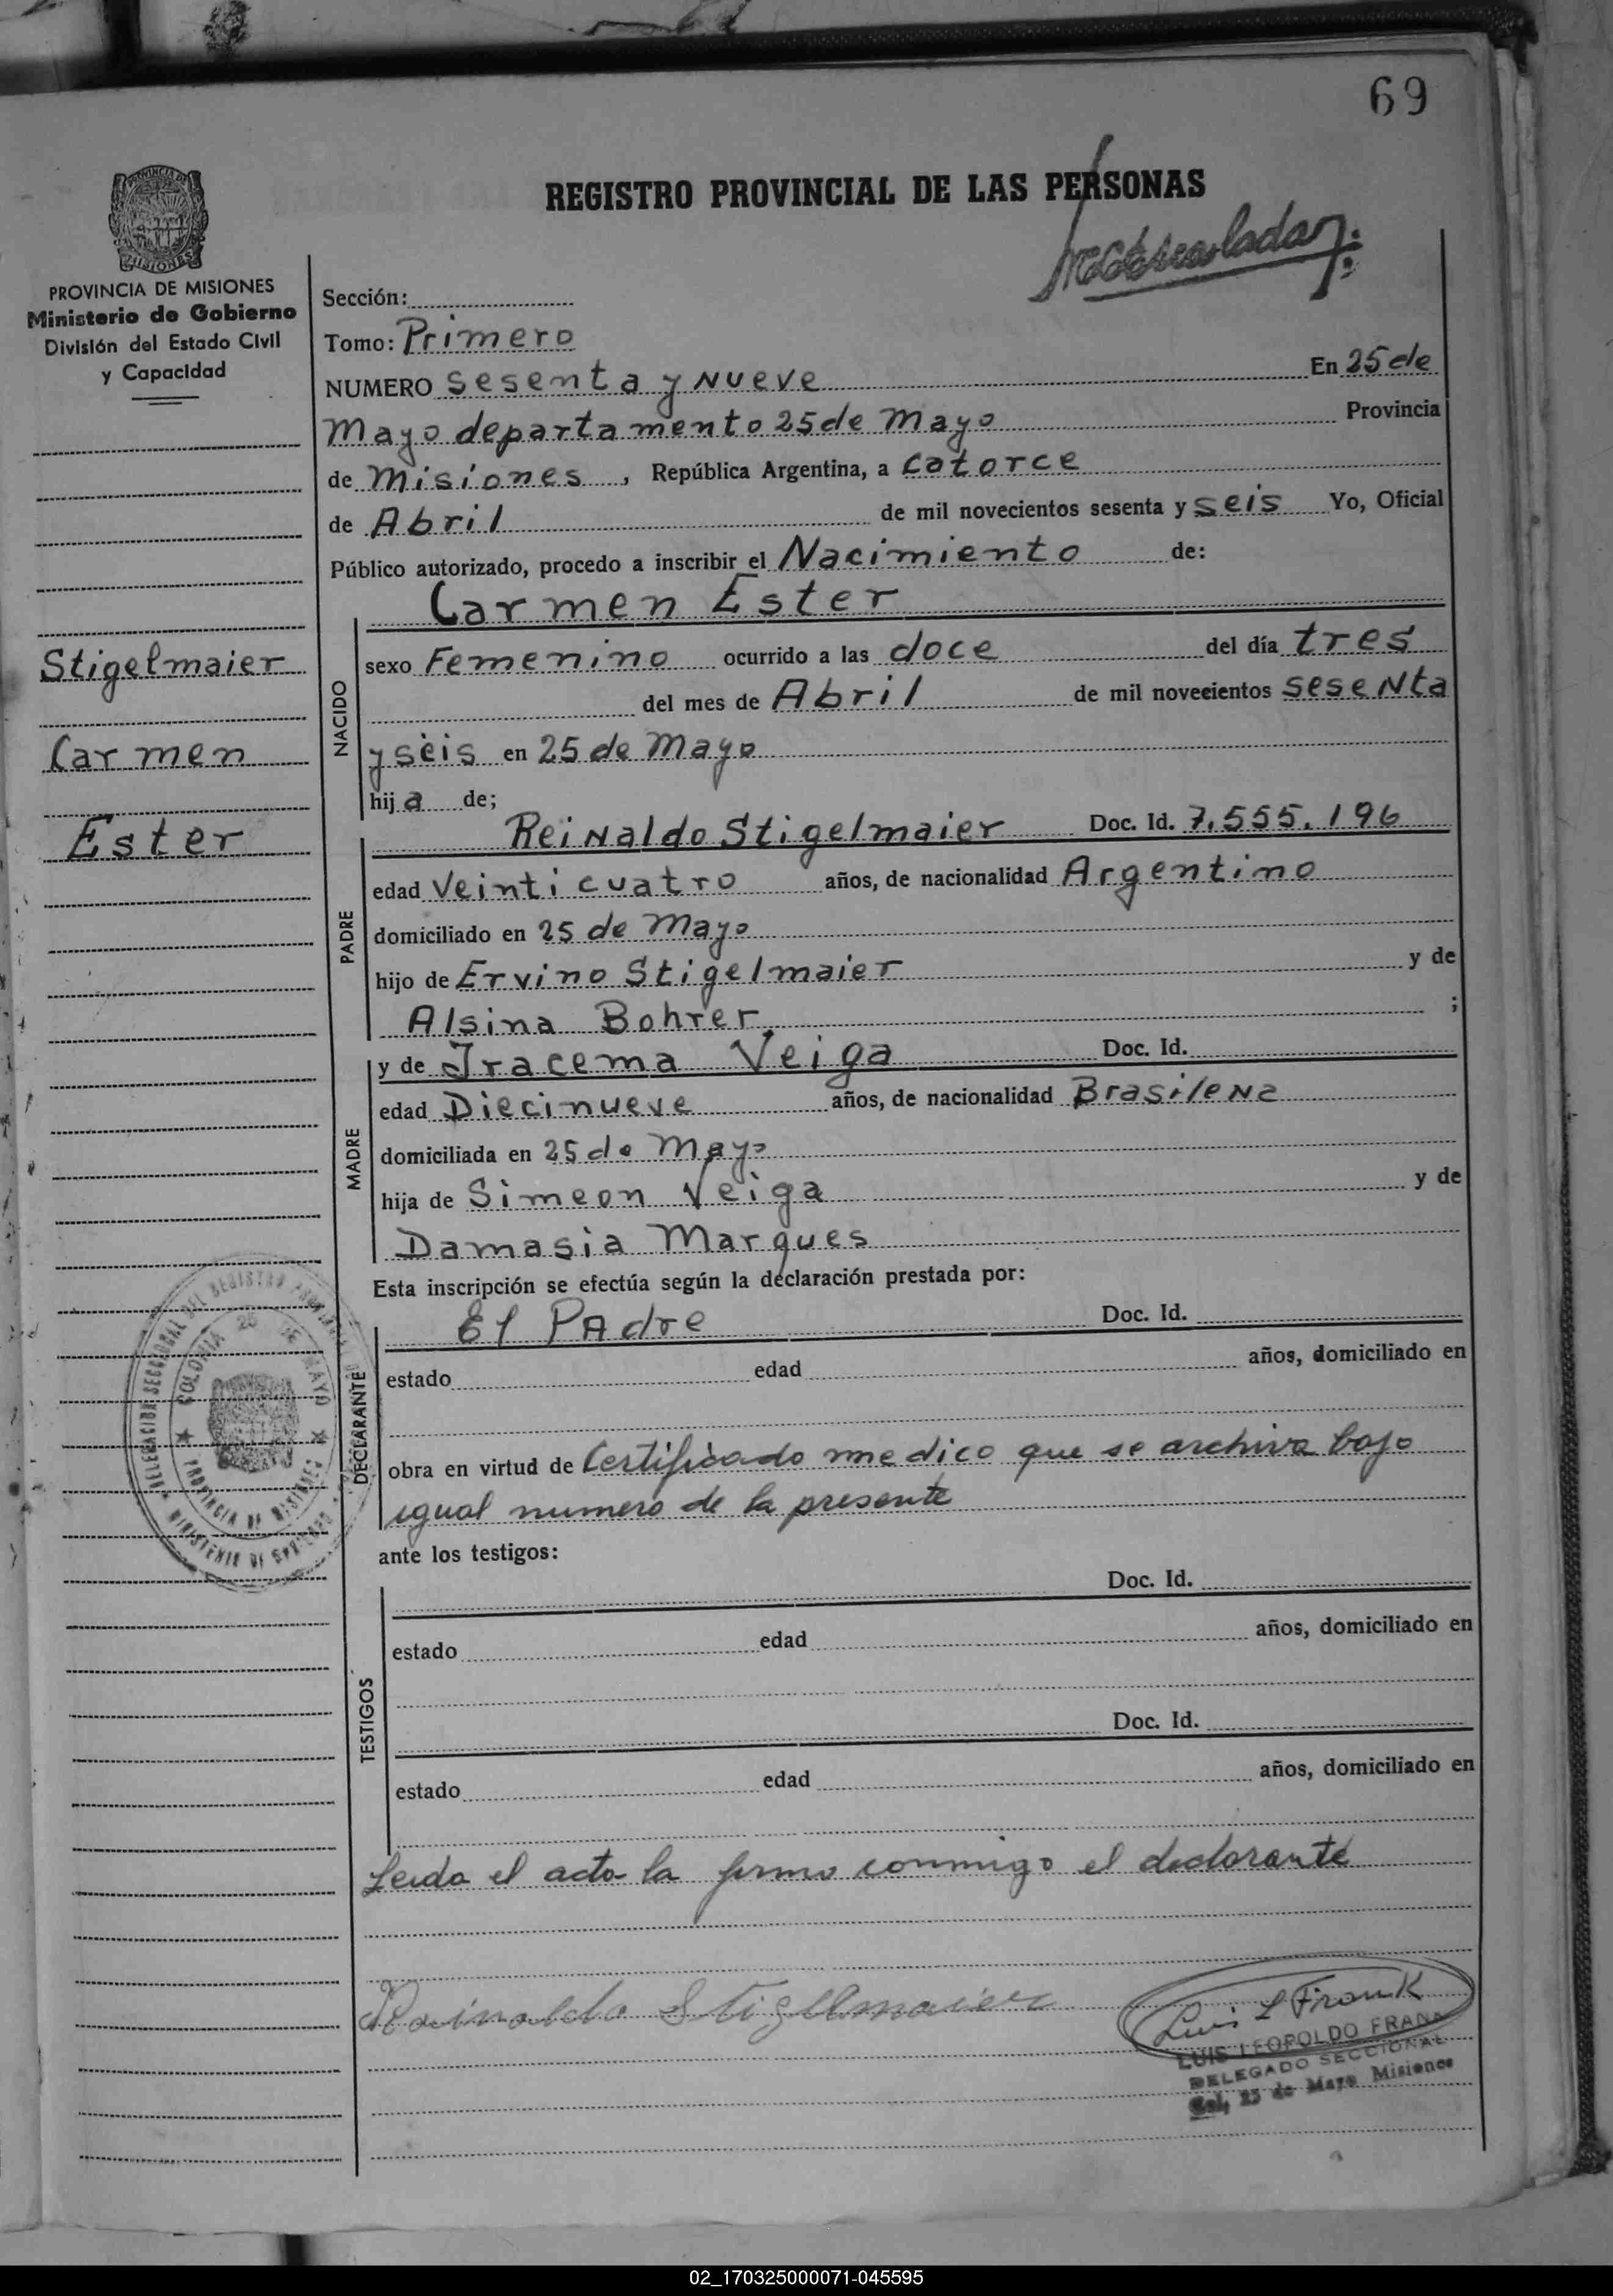 69
REGISTRO PROVINCIAL DE LAS PERSONAS
PROVINCIA DE MISIONES
MISIONES
PROVINCIA DE MISIONES
Ministerio de Gobierno
División del Estado Civil
y Capacidad
Stigelmaier
Carmen
Ester
Sección:
Tomo: Primero
NUMERO sesenta y Nueve En 25 de
Mayo departamento 25 de Mayo Provincia
de Misiones, República Argentina, a catorce
de Abril de mil novecientos sesenta y seis Yo, Oficial
Público autorizado, procedo a inscribir el Nacimiento de:
Carmen Ester
NACIDO
sexo Femenino ocurrido a las doce del día tres
del mes de Abril de mil novecientos sesenta
y seis en 25 de Mayo
hija de;
PADRE
Reinaldo Stigelmaier Doc. Id. 7.555.196
edad Veinticuatro años, de nacionalidad Argentino
domiciliado en 25 de Mayo
hijo de Ervino Stigelmaier y de
Alsina Bohrer ;
MADRE
y de Iracema Veiga Doc. Id.
edad Diecinueve años, de nacionalidad Brasilena
domiciliada en 25 de Mayo
hija de Simeon Veiga y de
Damasia Marques
Esta inscripción se efectúa según la declaración prestada por:
DECLARANTE
El Padre Doc. Id.
estado edad años, domiciliado en
obra en virtud de Certificado medico que se archiva bajo
igual numero de la presente
DELEGACION SECCIONAL DEL REGISTRO
COLONIA 25 DE MAYO
PROVINCIA DE MISIONES
MINISTERIO DE GOBIERNO
ante los testigos:
TESTIGOS
Doc. Id.
estado edad años, domiciliado en
Doc. Id.
estado edad años, domiciliado en
Leida el acta la firma conmigo el declarante
Reinaldo Stigelmaier
Luis L Frank
LUIS LEOPOLDO FRANK
DELEGADO SECCIONAL
Col. 25 de Mayo Misiones
02_170325000071-045595